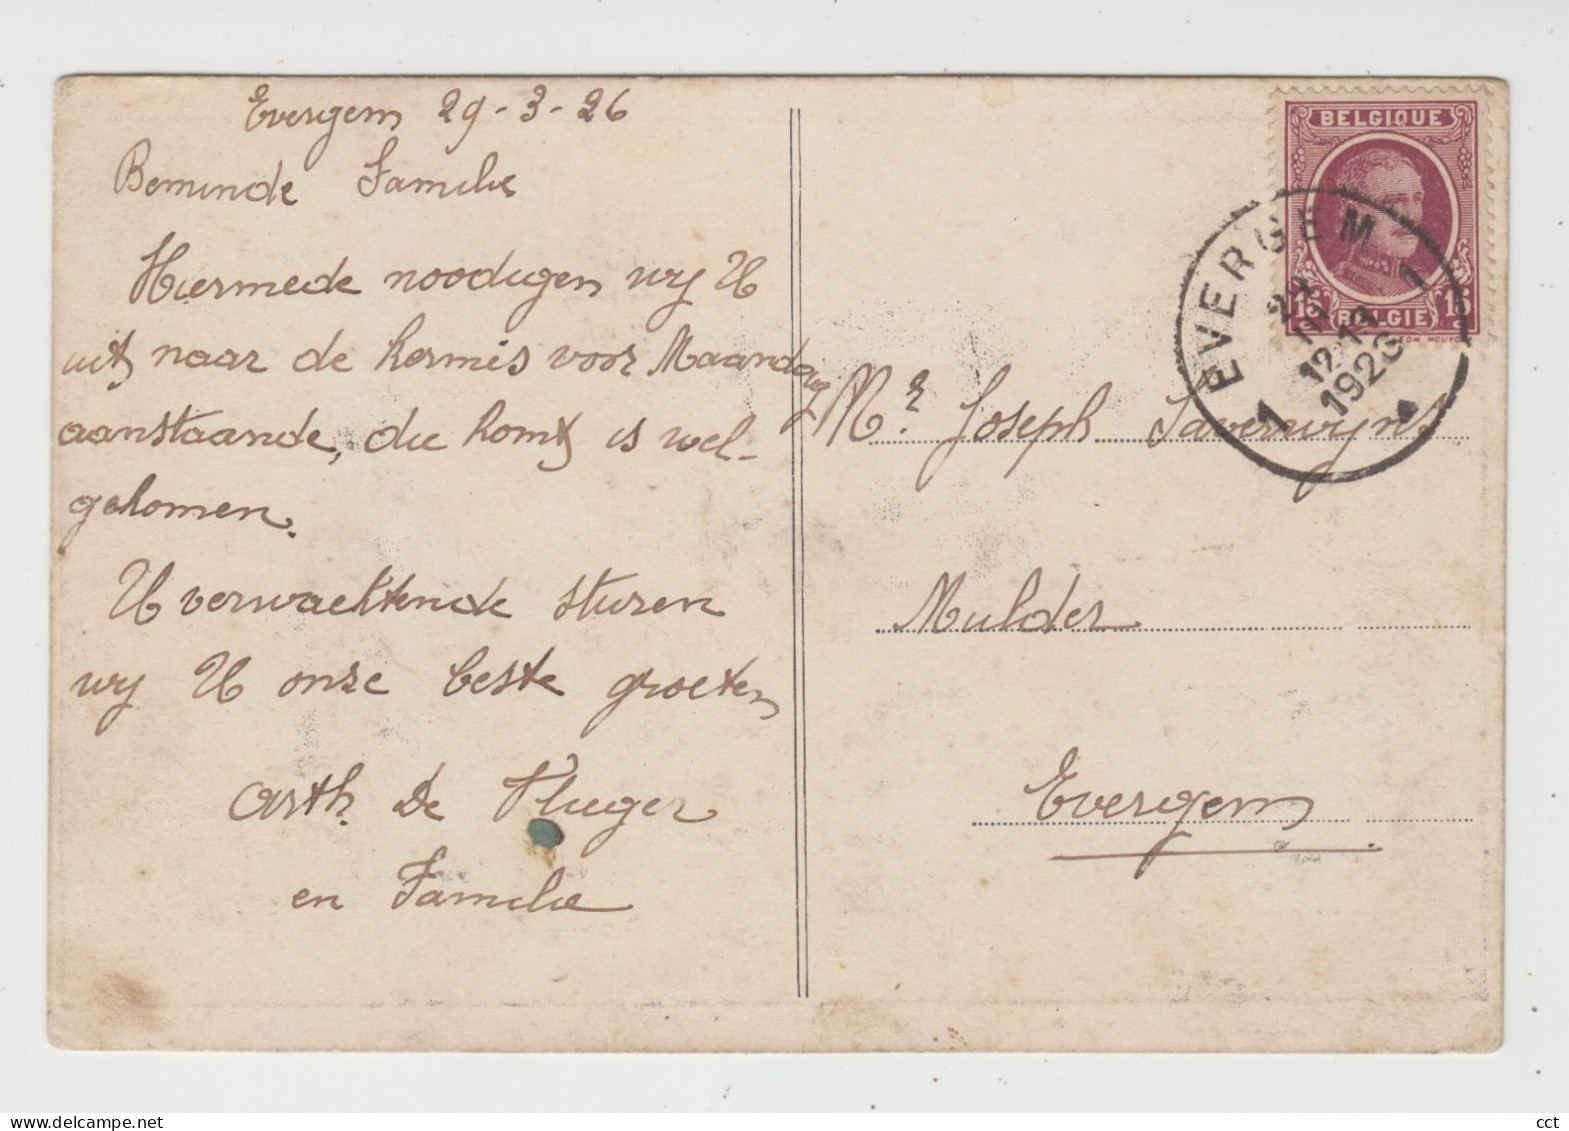 Evergem 29-3-26
Beminde Familie
Hiermede noodigen wy U
uit naar de kermis voor Maandag
aanstaande, die komt is wel-
gekomen.
U verwachtende sturen
wy U onze beste groeten
Arth. De Vlieger
en Familie
BELGIQUE
15 BELGIE 15
EVERGEM
1 1
29
III
12-13
1926
Mr. Joseph Saverwyns
Mulder
Evergem
cct